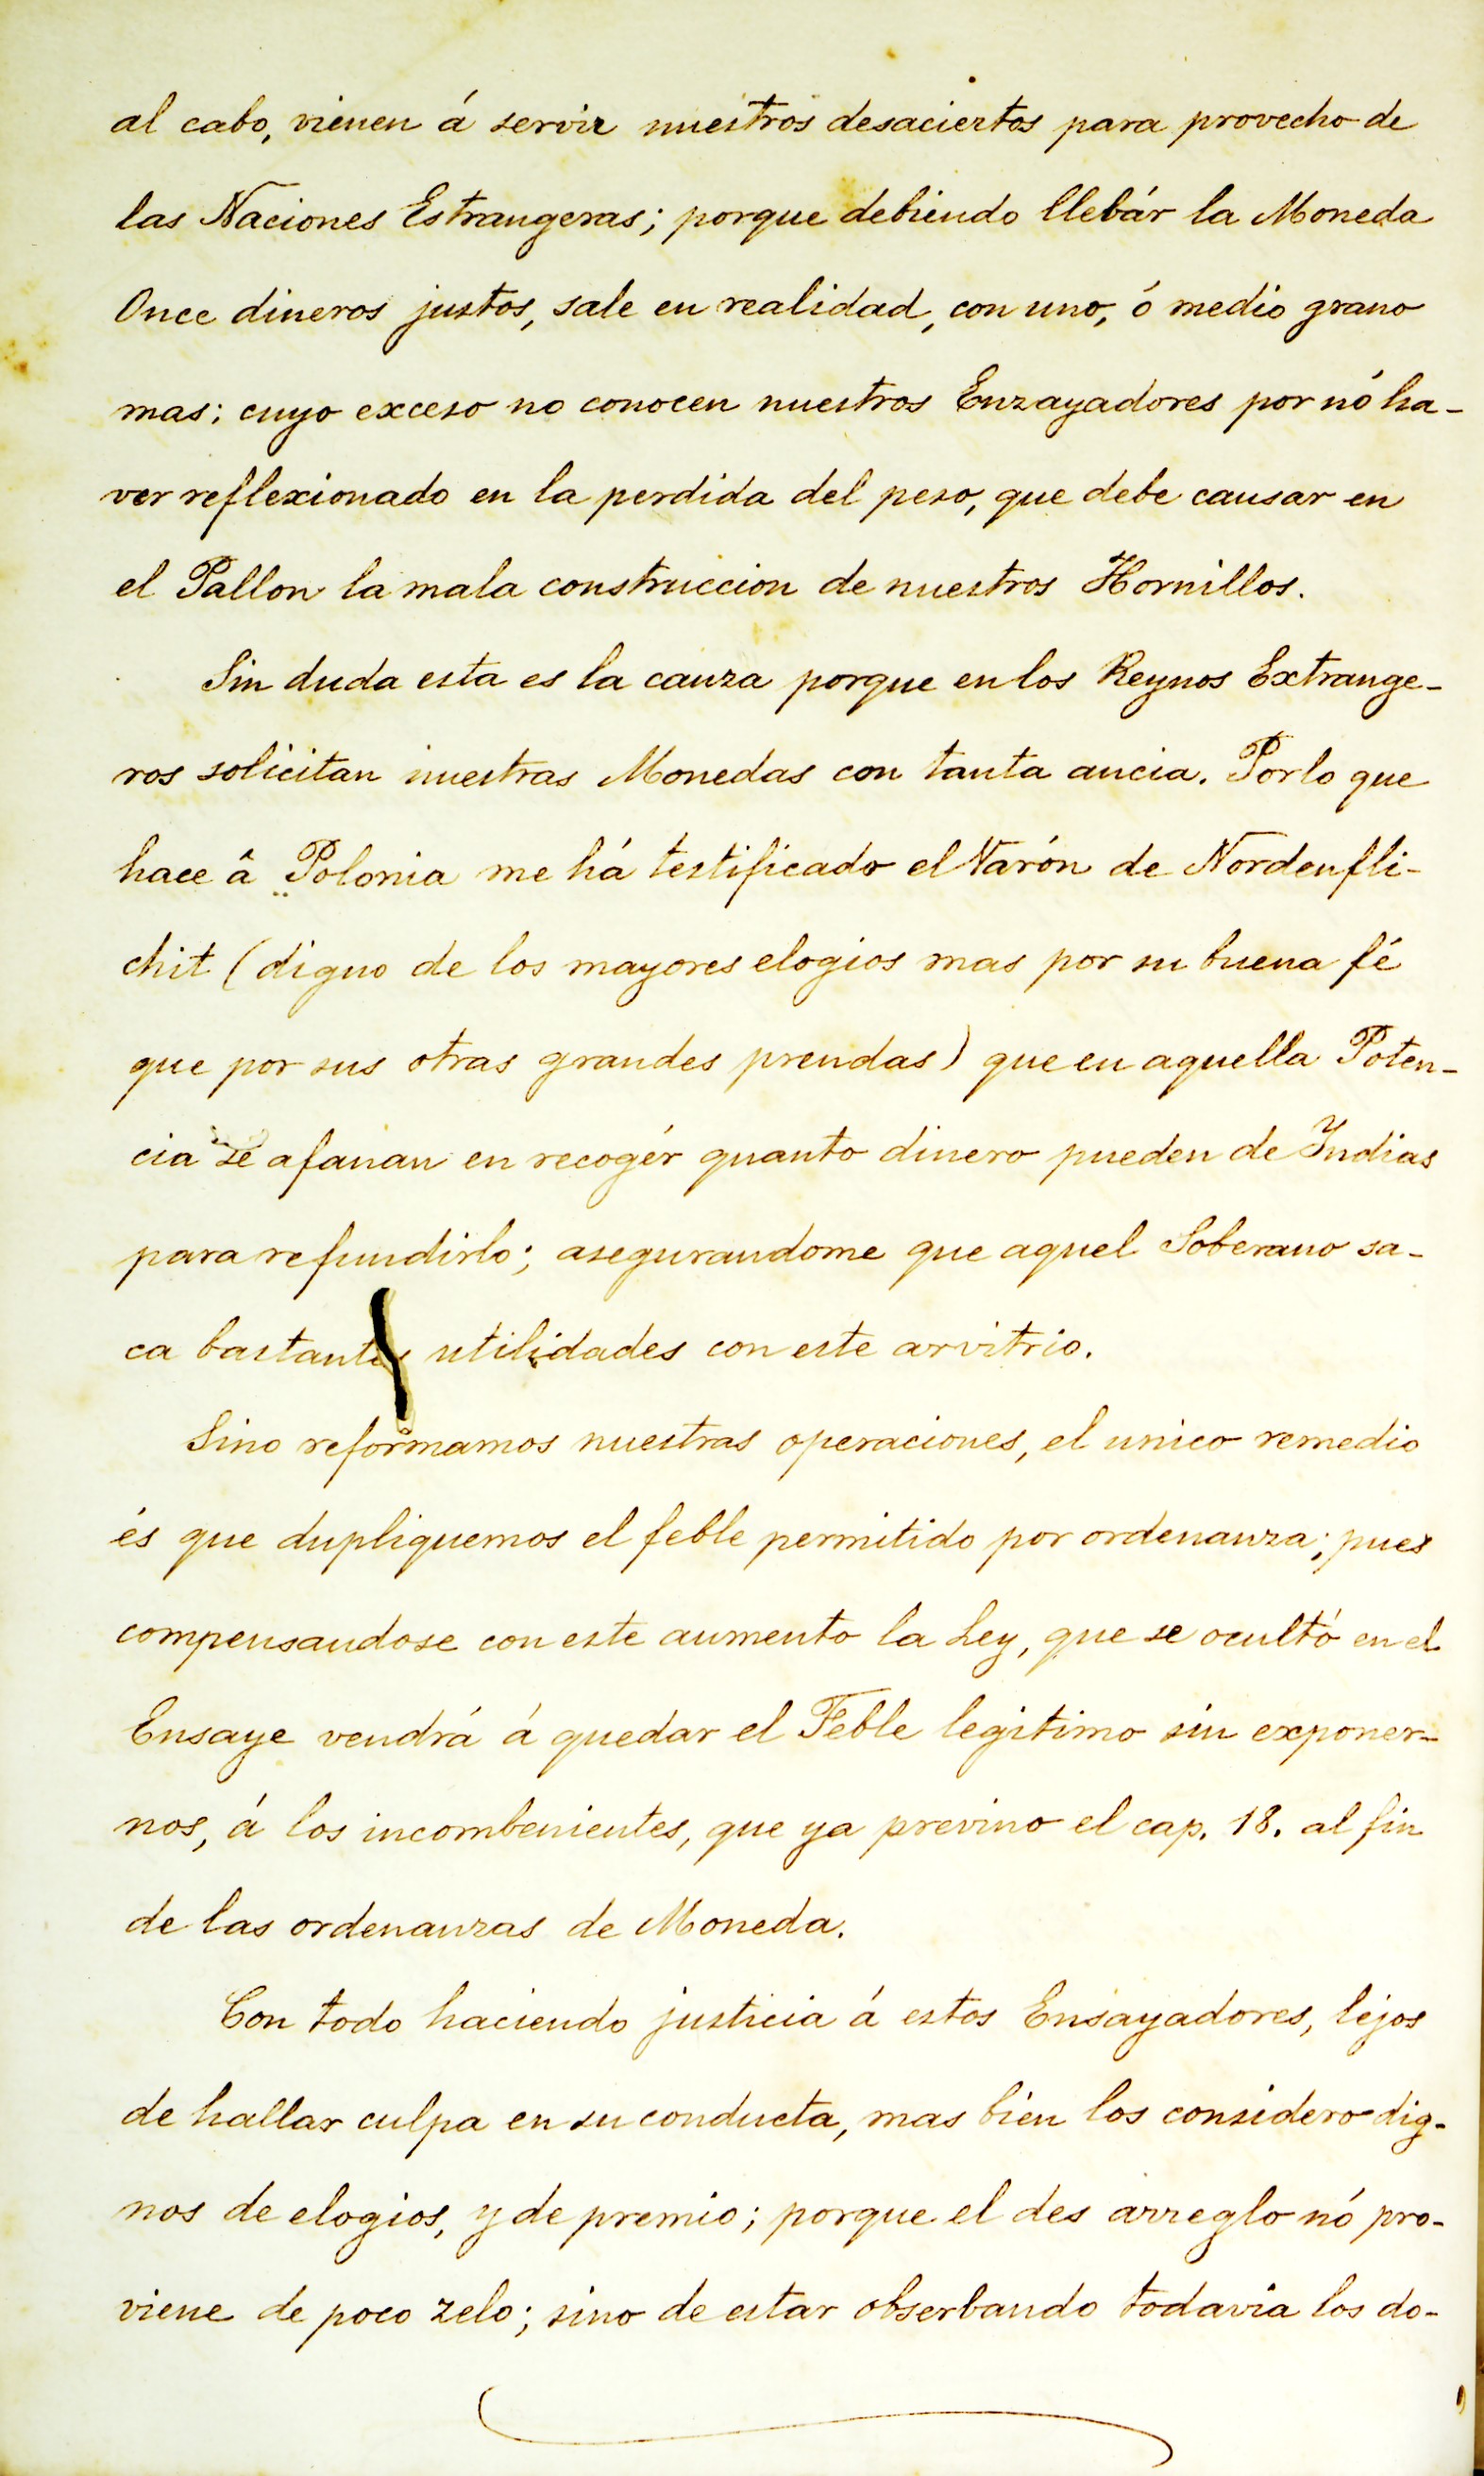 al cabo, vienen á servir nuestros desaciertos para provecho de
las Naciones Estrangeras; porque debiendo llebár la Moneda
Once dineros justos, sale en realidad, con uno, ó medio grano
mas: cuyo exceso no conocen nuestros Enzayadores por nó ha-
ver reflexionado en la perdida del peso, que debe causar en
el Pallon la mala construccion de nuestros Hornillos.
Sin duda esta es la cauza porque en los Reynos Extrange-
ros solicitan nuestras Monedas con tanta ancia. Por lo que
hace â Polonia me há testificado el Varón de Nordenfli-
chit (digno de los mayores elogios mas por su buena fé
que por sus otras grandes prendas) que en aquella Poten-
cia se afanan en recogér quanto dinero pueden de Indias
para refundirlo; asegurandome que aquel Soberano sa-
ca bastantes utilidades con este arvitrio.
Sino reformamos nuestras operaciones, el unico remedio
és que dupliquemos el feble permitido por ordenanza; pues
compensandose con este aumento la Ley, que se ocultó en el
Ensaye vendrá á quedar el Feble legitimo sin exponer-
nos, á los incombenientes, que ya previno el cap. 18. al fin
de las ordenanzas de Moneda.
Con todo haciendo justicia á estos Ensayadores, léjos
de hallar culpa en su conducta, mas bien los considero dig-
nos de elogios, y de premio; porque el des arreglo nó pro-
viene de poco zelo; sino de estar obserbando todavia los do-